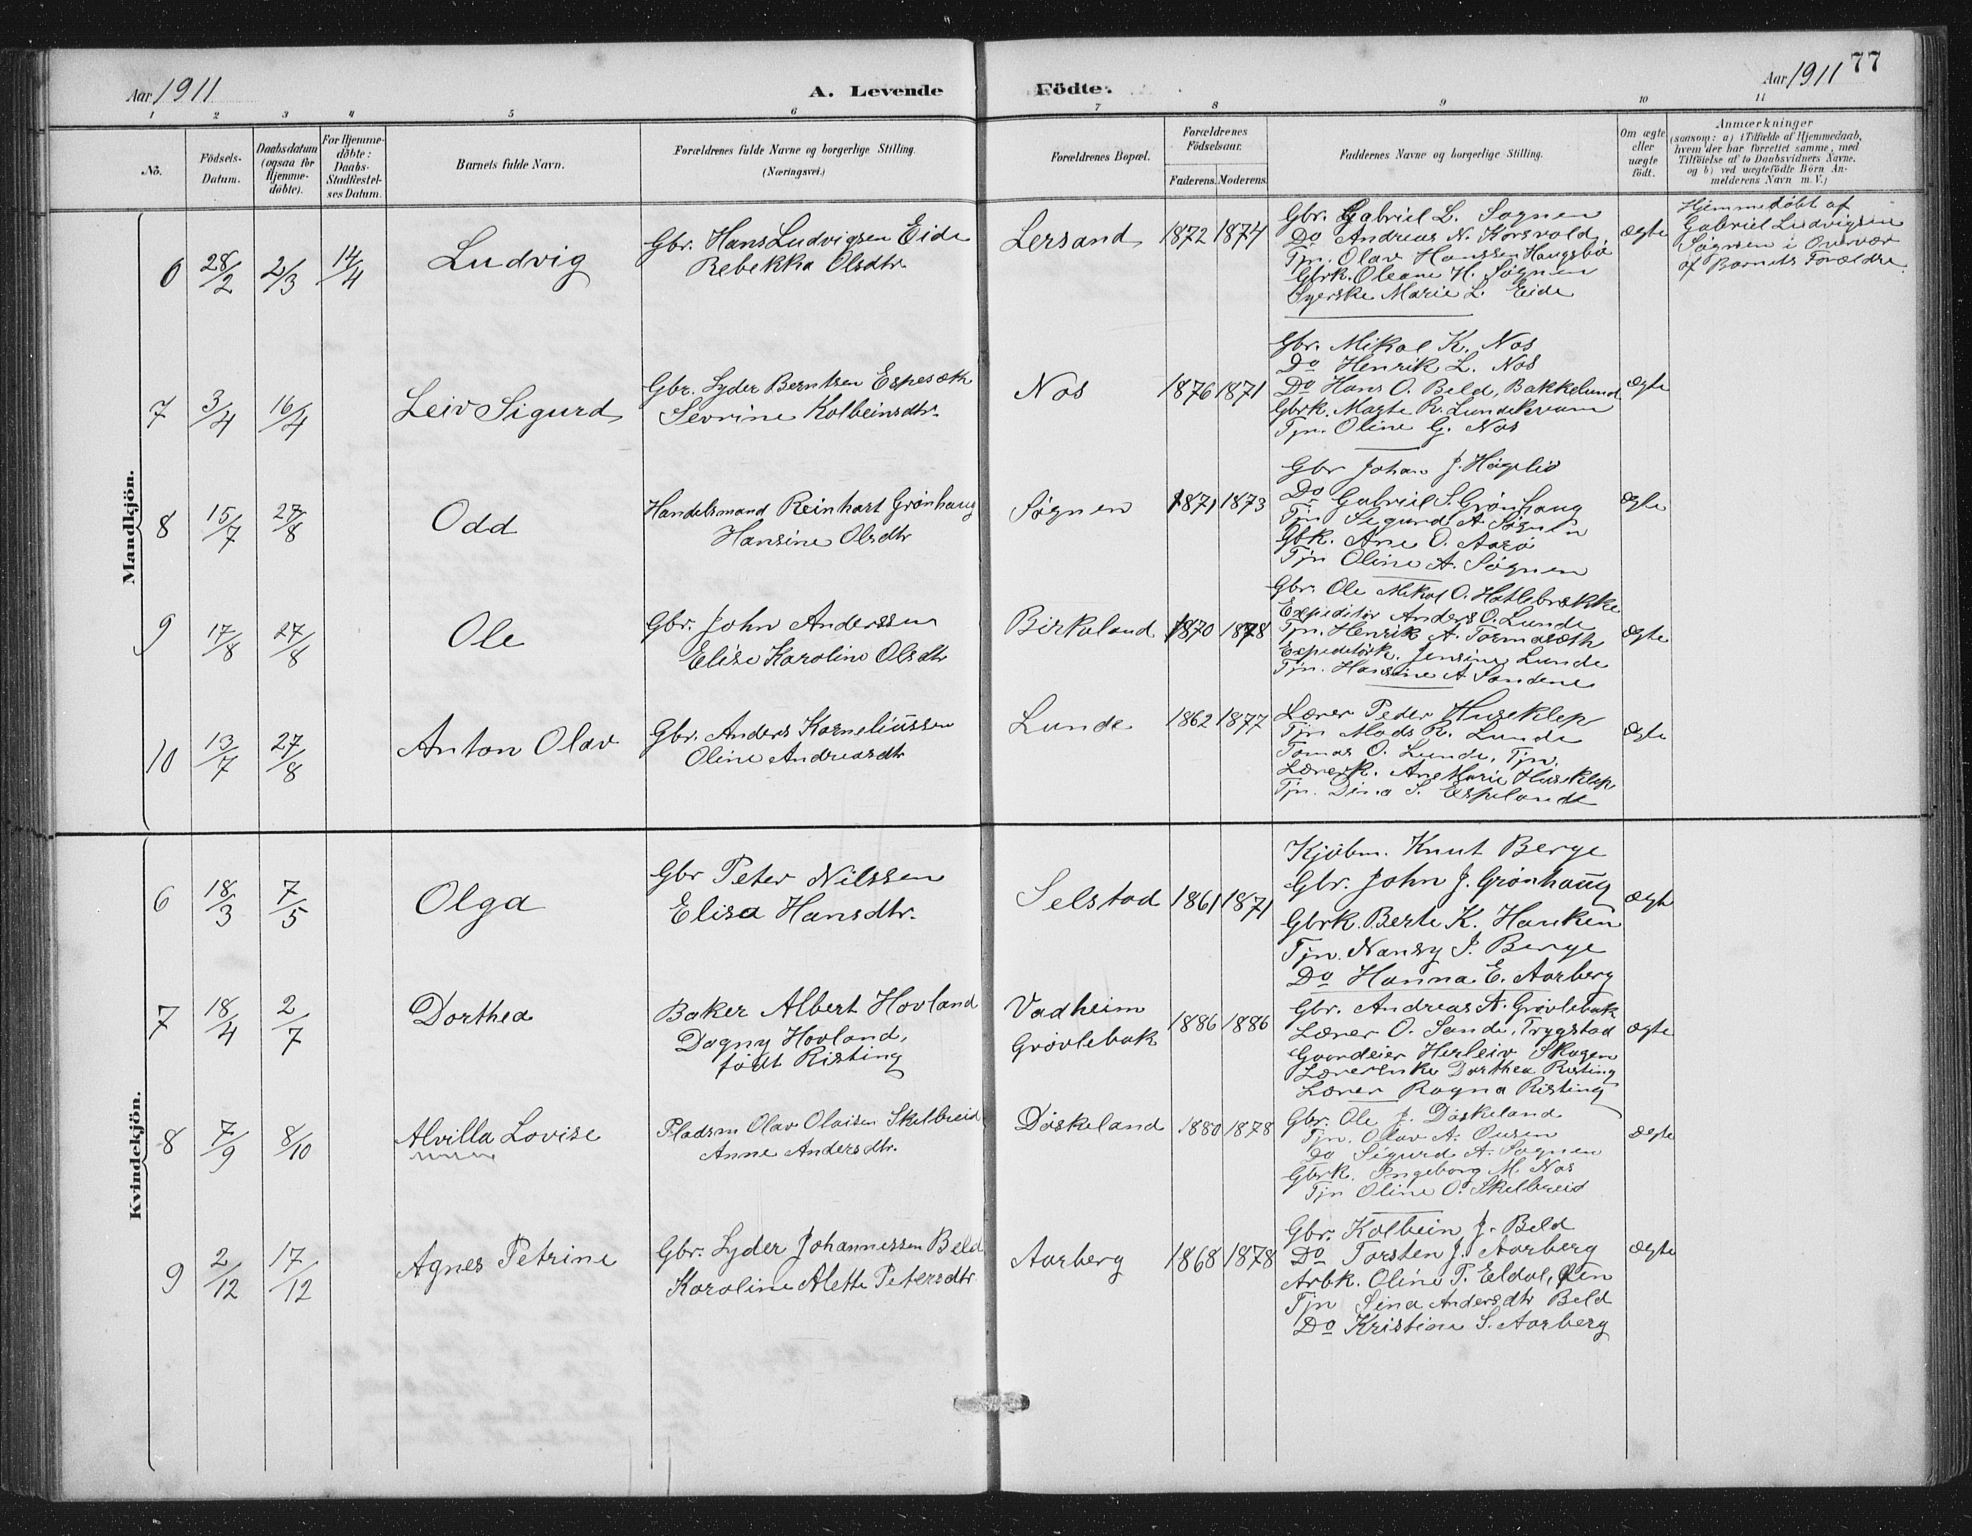 Aar 1911
A. Levende
Födte.
Aar 1911
77
1 2 3 4 5 6 7 8 9 10 11
No.
Födsels-
Datum.
Daabsdatum
(ogsaa för
Hjemme-
døbte).
For Hjemme-
døbte:
Daabs-
Stadfæstel-
ses Datum.
Barnets fulde Navn.
Forældrenes fulde Navne og borgerlige Stilling.
(Næringsvei.)
Forældrenes Bopæl.
Forældrenes
Födselsaar.
Faderens. Moderens.
Faddernes Navne og borgerlige Stilling.
Om ægte
eller
uægte
födt.
Anmærkninger
(saasom: a) i Tilfælde af Hjemmedaab,
hvem der har forrettet samme, med
Tilföielse af to Daabsvidners Navne.
og b) ved uægtefödte Börn An-
melderens Navn m. V.)
Mandkjön.
6 28/2 2/3 14/4 Ludvig
Gbr. Hans Ludvigsen Eide
Rebekka Olsdtr.
Lersand 1872 1874
Gbr. Gabriel L. Søgnen
Do Andreas N. Korsvold
Tjn. Olav Hanssen Haugsbø
Gbrk. Oleane H. Søgnen
Syerske Marie L. Eide
ægte
Hjemmedöbt af
Gabriel Ludvigsen
Søgnen i Overvær
af Barnets Forældre.
7 3/4 16/4 Leiv Sigurd
Gbr. Lyder Berntsen Espesæth
Sevrine Kolbeinsdtr.
Nos 1876 1871
Gbr. Mikal K. Nos
Do Henrik L. Nos
Do Hans O. Beld, Bakkelund
Gbrk. Marte R. Lundekvam
Tjn. Oline G. Nos
ægte
8 15/7 27/8 Odd
Handelsmand Reinhart Grønhaug
Hansine Olsdtr
Søgnen 1871 1873
Gbr Johan J. Høgelid
Do Gabriel S. Grønhaug
Tjn Sigurd A. Søgnen
Gbk. Ane O. Aarø
Tjn Oline A. Søgnen
ægte
9 17/8 27/8 Ole
Gbr. John Anderssen
Elise Karoline Olsdtr
Birkeland 1870 1878
Gbr. Ole Mikal O. Hatlebrække
Expeditör Anders O. Lunde
Tjn. Henrik A. Tormasæth
Expeditörk. Jensine Lunde
Tjn. Hansine A Sandene
ægte
10 13/7 27/8 Anton Olav
Gbr. Anders Korneliussen
Oline Andreasdtr
Lunde 1862 1877
Lærer Peder Huseklep
Tjn Mads R. Lunde
Tomas O. Lunde, Tjn.
Lærerk. Ane Marie Huseklep
Tjn. Dina S. Espelandt
ægte
Kvindekjön.
6 18/3 7/5 Olga
Gbr Peter Nilssen
Elisa Hansdtr.
Selstad 1861 1871
Kjøbm. Knut Berge
Gbr. John J. Grønhaug
Gbrk. Berte K. Hauken
Tjn. Nansy J. Berge
Do Hanna E. Aarberg
ægt
7 18/4 2/7 Dorthea
Baker Albert Hovland
Dagny Hovland,
født Risting
Vadheim
Grøvlebak
1886 1886
Gbr. Andreas A. Grøvlebak
Lærer O. Sande, Trygstad
Gaardeier Herleiv Skagen
Lærerenke Dorthea Risting
Lærer Ragna Risting
ægte
8 7/9 8/10 Alvilla Lovise
Pladsm Olav Olaisen Skilbreid
Anne Andersdtr.
Døskeland 1880 1878
Gbr. Ole J. Døskeland
Tjn. Olav A. Ousen
Do Sigurd A. Søgnen
Gbrk. Ingeborg M. Nos
Tjn Oline O. Skilbreid
ægte
9 2/12 17/12 Agnes Petrine
Gbr. Lyder Johannessen Beld
Karoline Alette Petersdtr.
Aarberg 1868 1878
Gbr. Kolbein J. Beld
Do Torsten J. Aarberg
Arbk. Oline P. Eldal,
Tjn Sina Andersdtr Beld
Do Kristine S. Aarberg
ægte